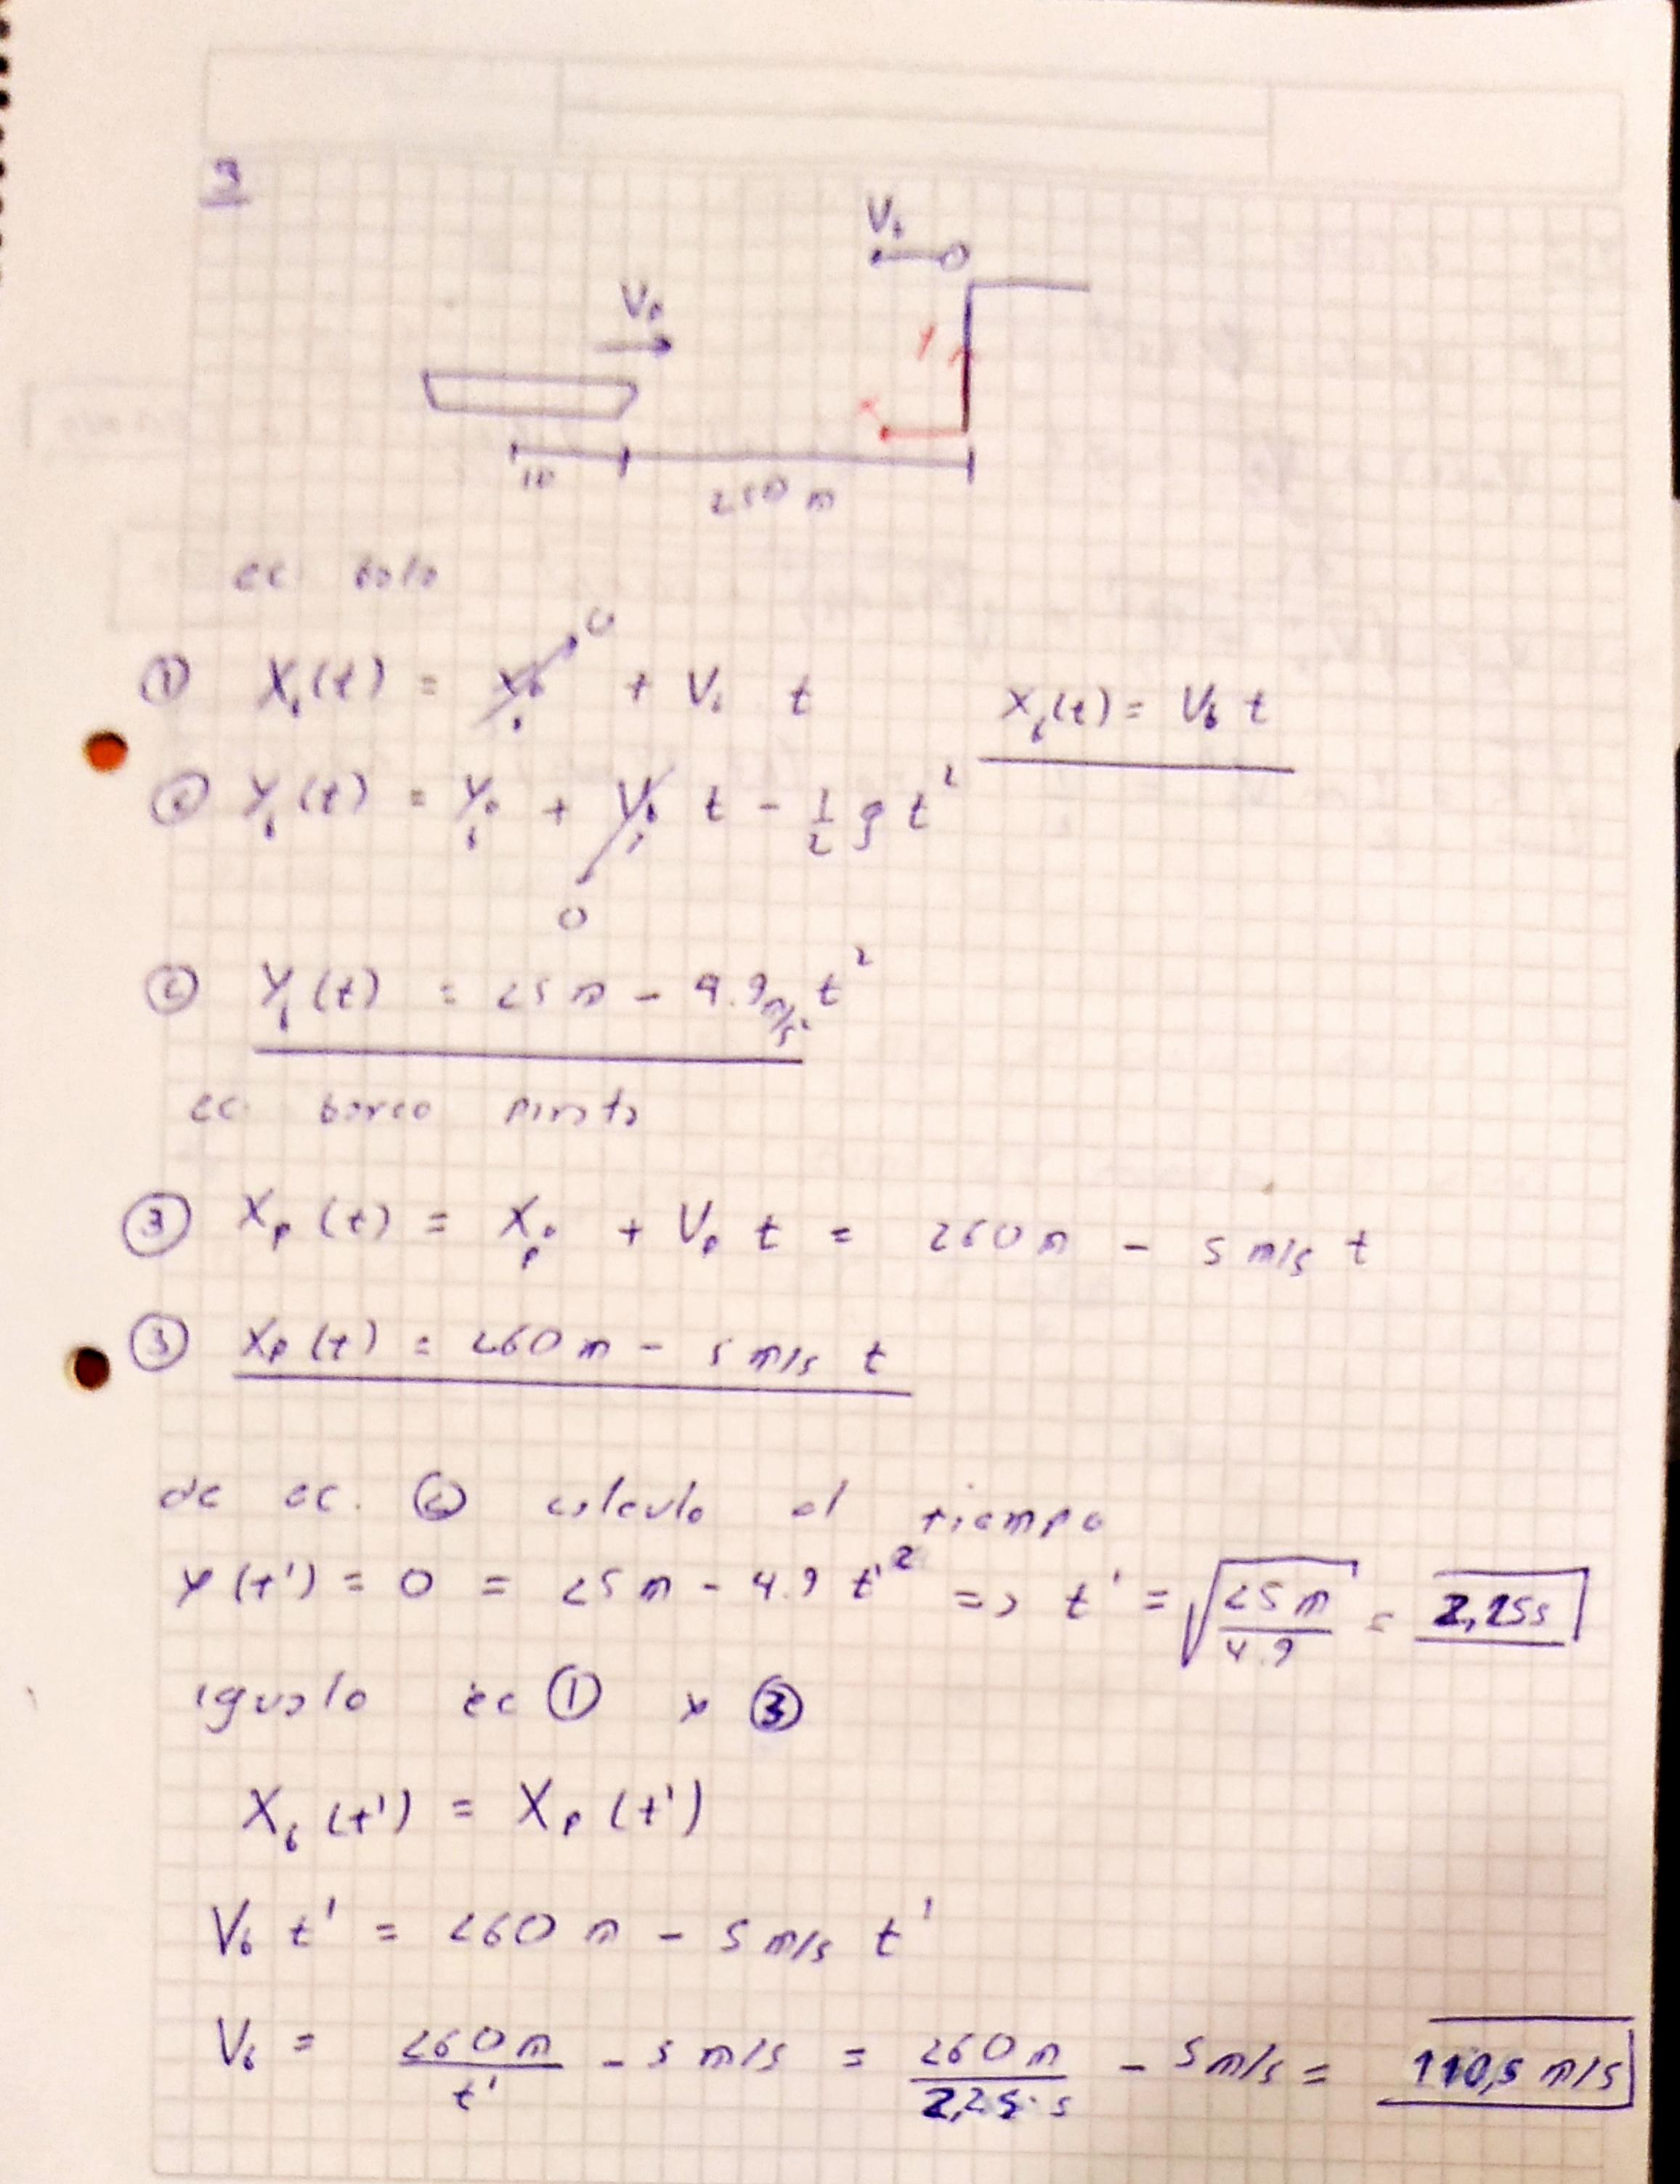 3
V₆
Vₚ
Y
x
10
250 m
ec bala
① X₆(t) = X₀₆ 0 + V₆ t X₆(t) = V₆ t
② Y₆(t) = Y₀₆ + V₆ t - 1/2 g t²
0
② Y₆(t) = 25 m - 4.9 m/s² t²
ec. barco pirata
③ Xₚ(t) = Xₚ₀ + Vₚ t = 260 m - 5 m/s t
③ Xₚ(t) = 260 m - 5 m/s t
de ec. ② calculo el tiempo
y(t') = 0 = 25 m - 4.9 t'² => t' = √(25 m / 4.9) = 2,25s
igualo ec ① y ③
X₆(t') = Xₚ(t')
V₆ t' = 260 m - 5 m/s t'
V₆ = 260 m / t' - 5 m/s = 260 m / 2,25 s - 5 m/s = 110,5 m/s